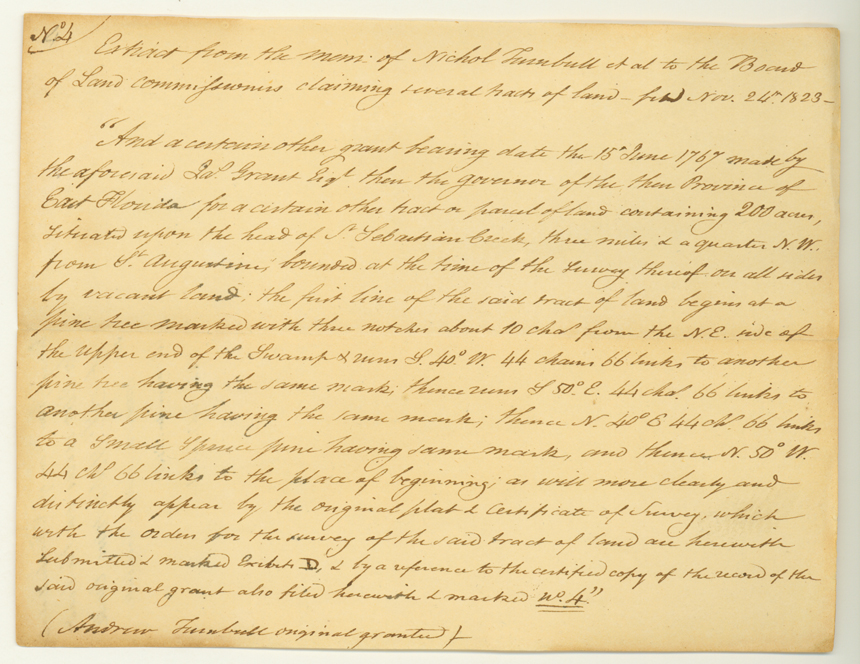 No. 4
Extract from the mem: of Nichol Turnbull et al to the Board
of Land commissioners claiming several tracts of land - filed Nov. 24th 1823 -
"And a certain other grant bearing date the 15th June 1767 made by
the aforesaid Jas. Grant Esqr. then the governor of the then Province of
East Florida for a certain other tract or parcel of land containing 200 acres,
situated upon the head of St. Sebastian Creek, three miles & a quarter N.W.
from St. Augustine, bounded at the time of the survey thereof on all sides
by vacant land; the first line of the said tract of land begins at a
pine tree marked with three notches about 10 chas. from the N.E. side of
the upper end of the Swamp & runs S. 40° W. 44 chains 66 links to another
pine tree having the same mark; thence runs S 50° E. 44 cha. 66 links to
another pine having the same mark; thence N. 40° E 44 chs. 66 links
to a small spruce pine having same mark, and thence N. 50° W.
44 chs. 66 links to the place of beginning; as will more clearly and
distinctly appear by the original plat & Certificate of Survey, which
with the orders for the survey of the said tract of land are herewith
submitted & marked Exibits D, & by a reference to the certified copy of the record of the
said original grant also filed herewith & marked No. 4"
(Andrew Turnbull original grantee)